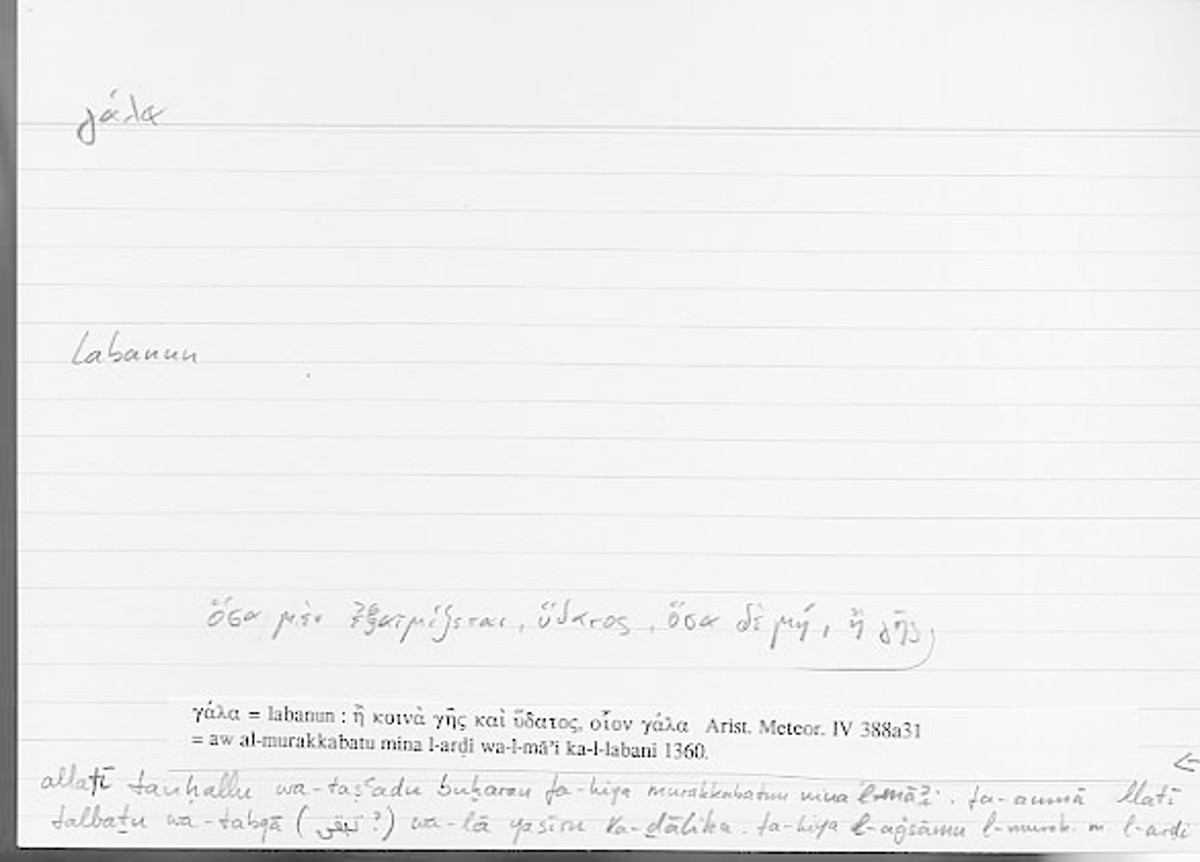 γάλα
labanun
ὅσα μὲν ἐξατμίζεται, ὕδατος, ὅσα δὲ μή, ἢ γῆς,
γάλα = labanun : ἢ κοινὰ γῆς καὶ ὕδατος, οἷον γάλα Arist. Meteor. IV 388a31
= aw al-murakkabatu mina l-arḍi wa-l-mā’i ka-l-labani 1360.
allatī tanḥallu wa-taṣʿadu buḫāran fa-hiya murakkabatun mina l-māʾi. fa-ammā llatī
talbaṯu wa-tabqā ( تبقى ?) wa-lā yaṣīru ka-ḏālika. fa-hiya l-aǧsāmu l-murak. m. l-arḍi